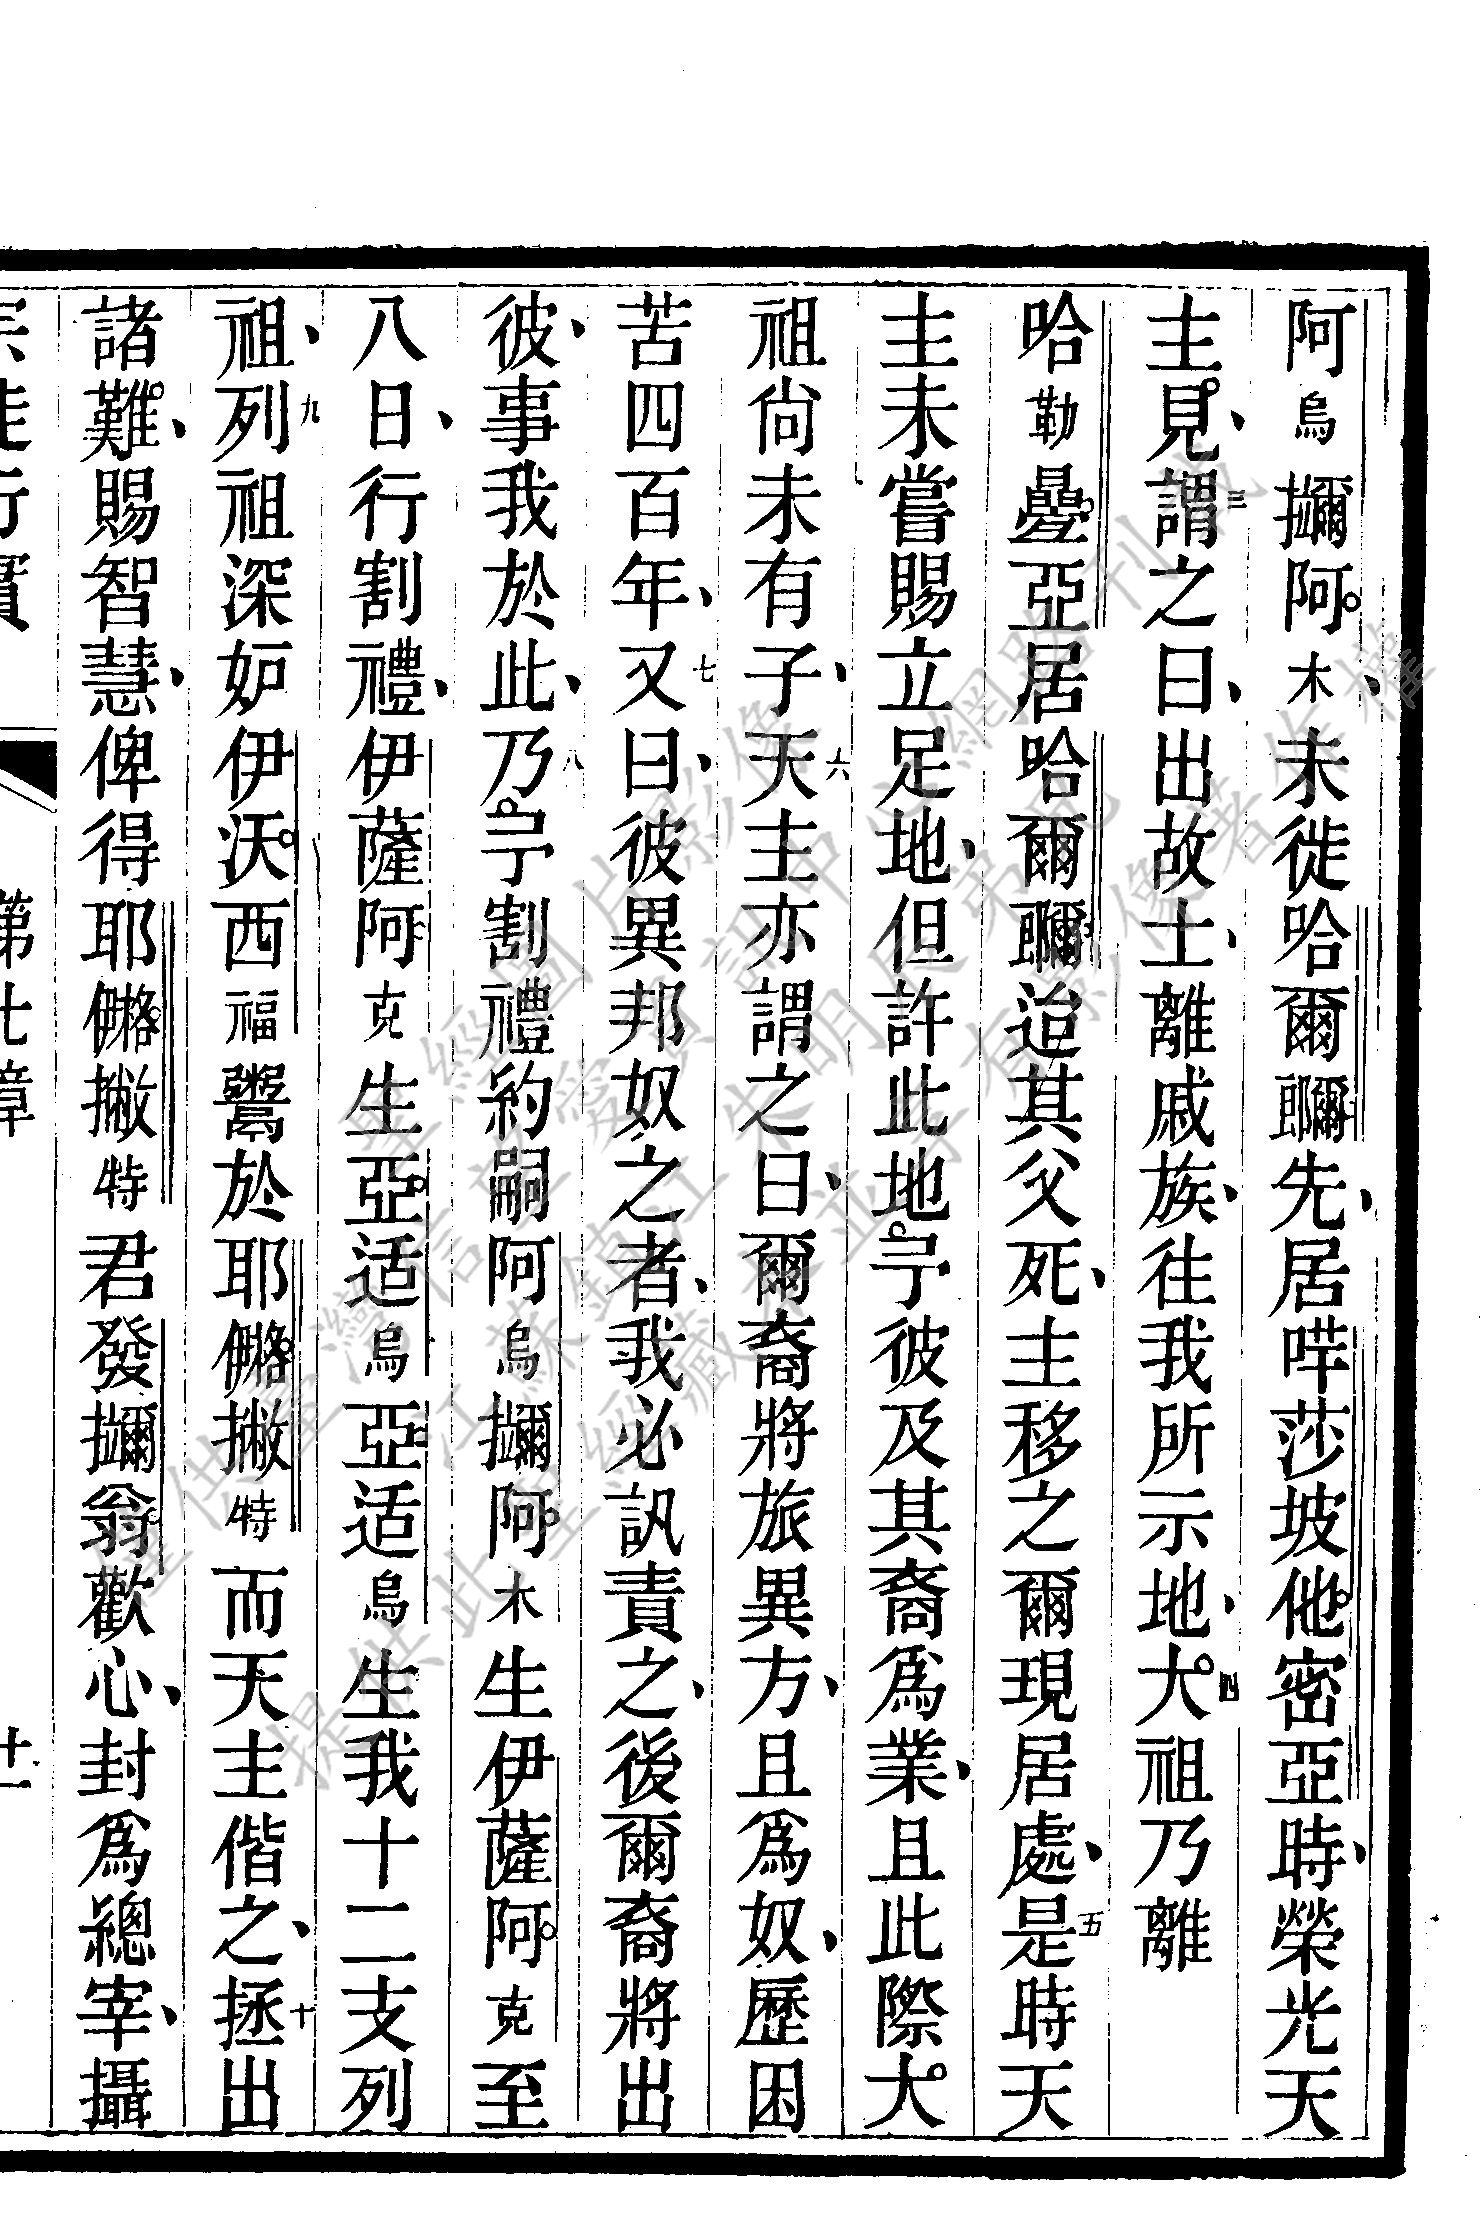 阿烏𭡬阿木未徙哈爾䣕先居嗶莎坡他密亞時榮光天
主見三謂之曰出故土離戚族往我所示地四大祖乃離
哈勒疊亞居哈爾䣕迨其父死主移之爾現居處五是時天
主未嘗賜立足地但許此地予彼及其裔爲業且此際大
祖尙未有子六天主亦謂之曰爾裔將旅異方且爲奴歷困
苦四百年七又曰彼異邦奴之者我必訊責之後爾裔將出
彼事我於此八乃予割禮約嗣阿烏阿木生伊薩阿克至
八日行割禮伊薩阿克生亞适烏亞适烏生我十二支列
祖九列祖深妒伊沃西福鬻於耶特而天主偕之十拯出
諸難賜智慧俾得耶特君發翁歡心封爲總宰攝
宗徒行實 第七章 十一